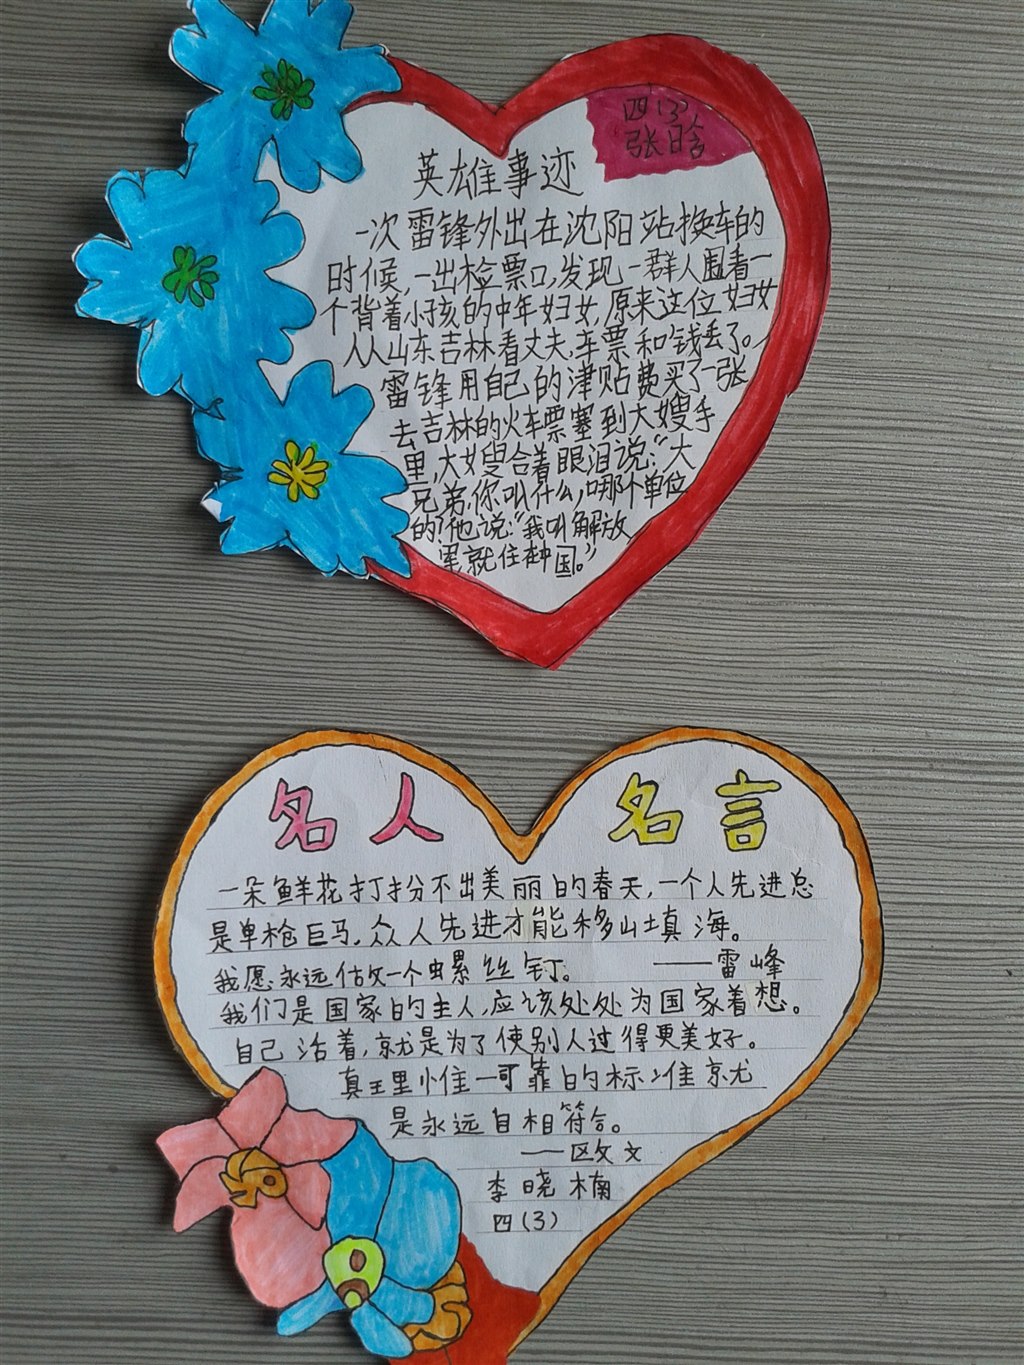 四(3)
张晗
英雄事迹
一次雷锋外出在沈阳站换车的
时候,一出检票口,发现一群人围着一
个背着小孩的中年妇女,原来这位妇女
从山东吉林看丈夫,车票和钱丢了。
雷锋用自己的津贴费买了一张
去吉林的火车票塞到大嫂手
里,大嫂含着眼泪说:“大
兄弟,你叫什么,哪个单位
的?”他说:“我叫解放
军就住在中国。”
名人名言
一朵鲜花打扮不出美丽的春天,一个人先进总
是单枪匹马,众人先进才能移山填海。
我愿永远做一个虫螺丝钉。——雷峰
我们是国家的主人,应该处处为国家着想。
自己活着,就是为了使别人过得更美好。
真王里惟一可靠的标准就
是永远自相符合。
——区欠文
李晓楠
四(3)